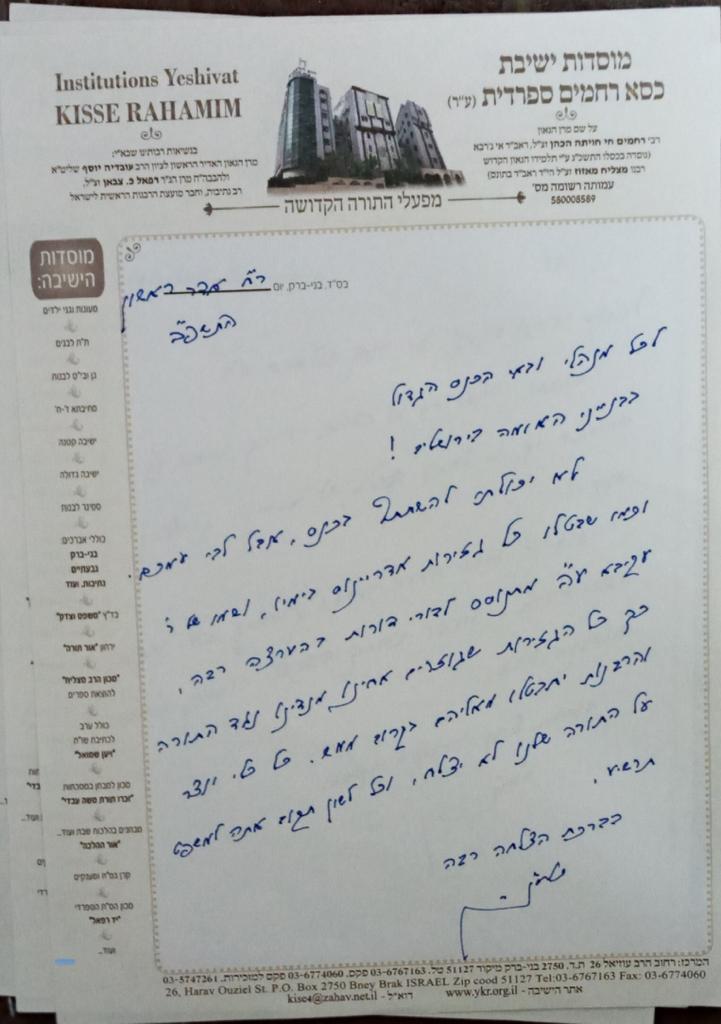 Institutions Yeshivat
KISSE RAHAMIM
בנשיאות רבותינו שבא"י:
מרן הגאון האדיר הראשון לציון הרב עובדיה יוסף שליט"א
ולהבבה"ח מרן הגר' רפאל כ. צבאן זצ"ל,
רב נתיבות, וחבר מועצת הרבנות הראשית לישראל
מוסדות ישיבת
כסא רחמים ספרדית (ע"ר)
על שם מרן הגאון
רבי רחמים חי חויתה הכהן זצ"ל, ראב"ד אי ג'רבא
(נוסדה בכסלו התשכ"ג ע"י תלמידו הגאון הקדוש
רבנו מצליח מאזוז זצ"ל הי"ד ראב"ד בתונס)
עמותה רשומה מס'
580008589
מפעלי התורה הקדושה
מוסדות
הישיבה:
מעונות וגני ילדים
ת"ת לבנים
גן ובי"ס לבנות
מתיבתא ד'-ח'
ישיבה קטנה
ישיבה גדולה
סמינר לבנות
כוללי אברכים:
בני-ברק
גבעתיים
נתיבות, ועוד
בד"ץ "משפט וצדק"
ירחון "אור תורה"
"מכון הרב מצליח"
להוצאת ספרים
כולל ערב
לכתיבת שו"ת
"ויען שמואל"
מכון למבחן במסכתות
"זכרו תורת משה עבדי"
מבחנים בהלכות שבת ועוד...
"אור ההלכה"
קרן גמ"ח ומענקים
מכון הסת"ם הספרדי
"יד רפאל"
ועוד...
בס"ד, בני-ברק, יום ר"ח אדר ראשון
התשפ"ב
לכל מנהלי ובאי הכנס הגדול
בבנייני האומה בירושלים!
לא יכולתי להשתתף בכנס, אבל לבי עמכם.
וכמו שבטלו כל גזירות אדריינוס בימיו, ושמו של ר'
עקיבא ע"ה מתנוסס לדורי דורות בהערצה רבה,
כך כל הגזירות שגוזרים אחינו מנדינו נגד התורה
והרבנות יתבטלו מאליהם בקרוב ממש. כל כלי יוצר
על התורה שלנו לא יצלח, וכל לשון תקום אתה למשפט
תרשיע.
בברכת הצלחה רבה
המרכז: רחוב הרב עוזיאל 26 ת.ד. 2750 בני-ברק מיקוד 51127 טל. 03-6767163 פקס. 03-6774060 פקס למזכירות. 03-5747261
26, Harav Ouziel St. P.O. Box 2750 Bney Brak ISRAEL Zip cood 51127 Tel:03-6767163 Fax: 03-6774060
אתר הישיבה - www.ykr.org.il דוא"ל - kise4@zahav.net.il